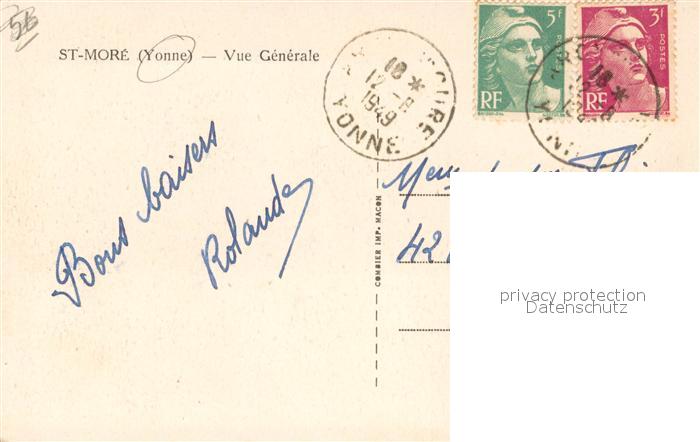 56
ST-MORÉ (Yonne) — Vue Générale
18 *
12 - 8
1949
YONNE
5F
POSTES
RF
3F
POSTES
RF
18 *
Bons baisers
Rolande
COMBIER IMP. MACON
42
privacy protection
Datenschutz